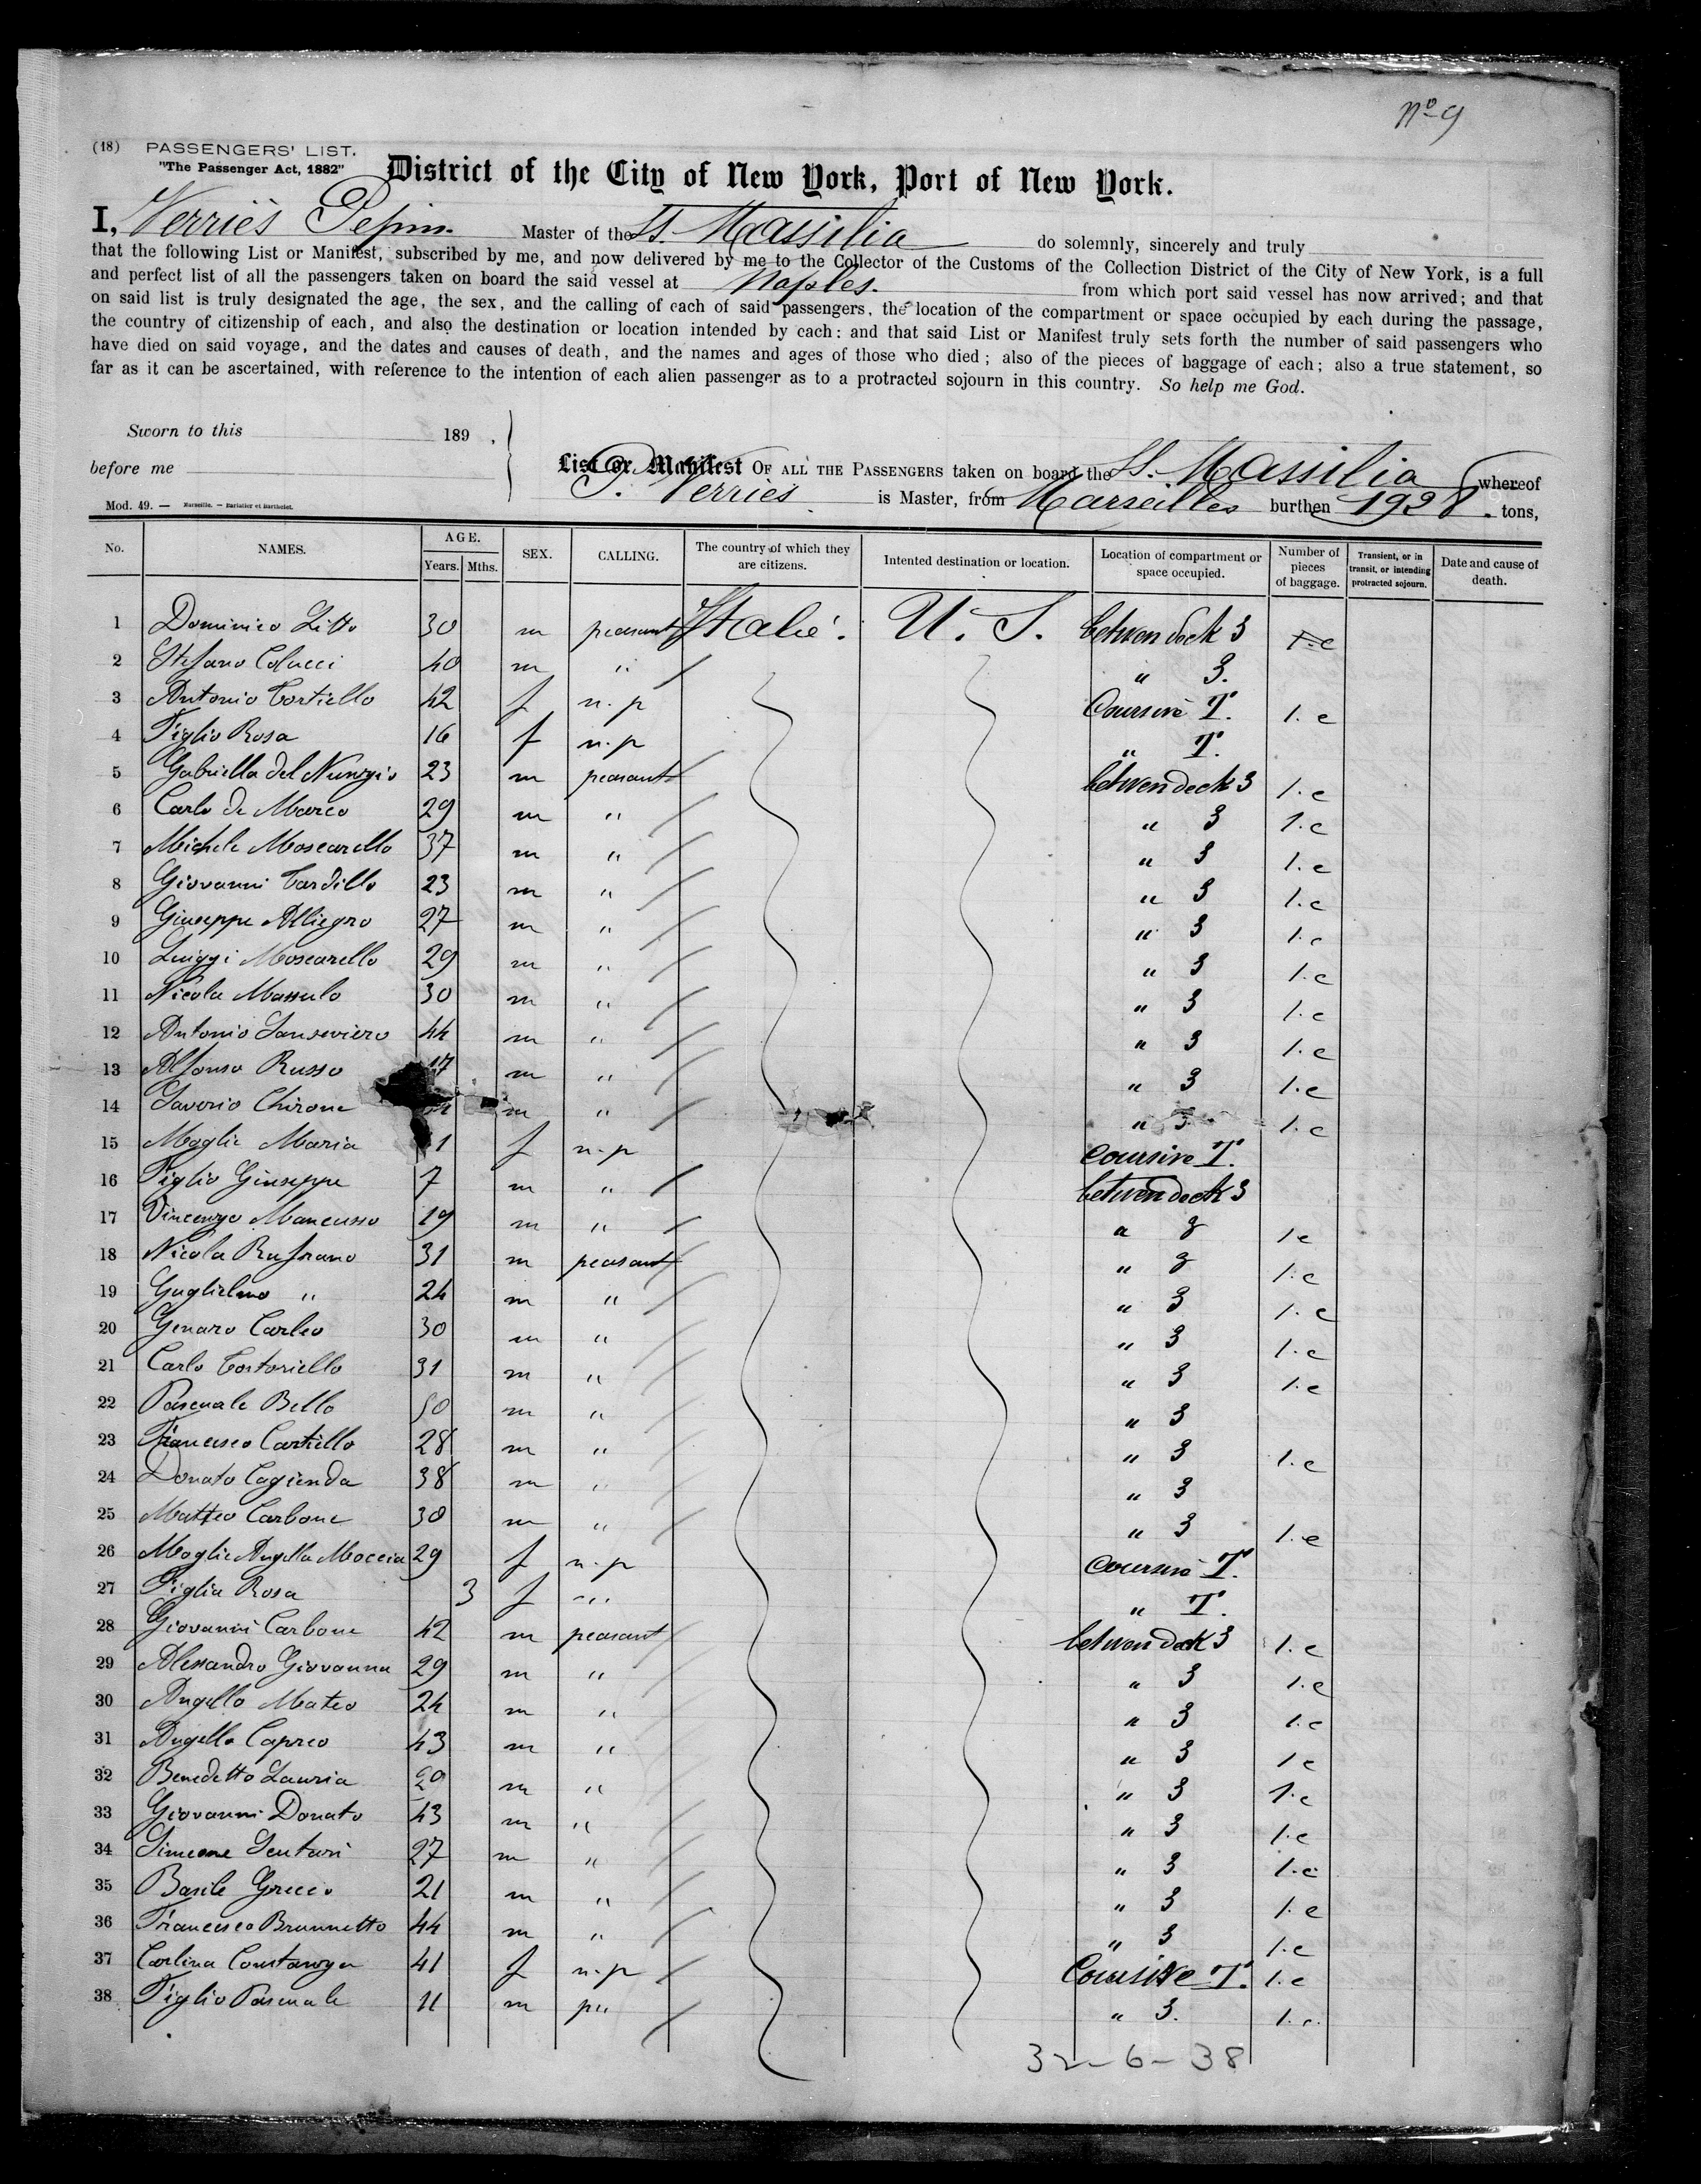 Nº 9
(18) PASSENGERS' LIST.
"The Passenger Act, 1882"
District of the City of New York, Port of New York.
I, Verries Pepin. Master of the SS. Massilia do solemnly, sincerely and truly
that the following List or Manifest, subscribed by me, and now delivered by me to the Collector of the Customs of the Collection District of the City of New York, is a full
and perfect list of all the passengers taken on board the said vessel at Naples. from which port said vessel has now arrived; and that
on said list is truly designated the age, the sex, and the calling of each of said passengers, the location of the compartment or space occupied by each during the passage,
the country of citizenship of each, and also the destination or location intended by each: and that said List or Manifest truly sets forth the number of said passengers who
have died on said voyage, and the dates and causes of death, and the names and ages of those who died; also of the pieces of baggage of each; also a true statement, so
far as it can be ascertained, with reference to the intention of each alien passenger as to a protracted sojourn in this country. So help me God.
Sworn to this 189 ,
before me
List or Manifest OF ALL THE PASSENGERS taken on board the SS. Massilia whereof
P. Verries is Master, from Marseilles burthen 1928 tons,
Mod. 49. — Marseille. — Barlatier et Barthelet.
No. NAMES. AGE. Years. Mths. SEX. CALLING. The country of which they are citizens. Intented destination or location. Location of compartment or space occupied. Number of pieces of baggage. Transient, or in transit, or intending protracted sojourn. Date and cause of death.
1 Dominico Litto 30 m peasant Italie. U. S. betwen deck 3
2 Stefano Colucci 40 m " " 3.
3 Antonio Tortiello 42 f n.p Coursive T. 1.c
4 Figlio Rosa 16 f n.p " T.
5 Gabriella del Nunzio 23 m peasant betwen deck 3 1.c
6 Carlo de Marco 29 m " " 3 1.c
7 Michele Moscarello 37 m " " 3 1.c
8 Giovanni Cardillo 23 m " " 3 1.c
9 Giuseppe Alliegro 27 m " " 3 1.c
10 Luiggi Moscarello 29 m " " 3 1.c
11 Nicola Massulo 30 m " " 3 1.c
12 Antonio Sanseviero 44 m " " 3 1.c
13 Alfonso Russo m " " 3 1.c
14 Saverio Chirone m " " 3 1.c
15 Moglie Maria f n.p coursive T.
16 Figlio Giuseppe 7 m " betwen deck 3
17 Vincenzo Mancusso 19 m " " 3 1c
18 Nicola Rufrano 31 m peasant " 3 1.c
19 Guglielmo " 24 m " " 3 1.c
20 Genaro Carleo 30 m " " 3 1.c
21 Carlo Tortoriello 31 m " " 3 1.c
22 Pascuale Bello 50 m " " 3
23 Francesco Cartiello 28 m " " 3 1.c
24 Donato Cagienda 38 m " " 3
25 Matteo Carbone 30 m " " 3 1.c
26 Moglie Angella Moccia 29 f n.p coursive T.
27 Figlia Rosa 3 f " " T.
28 Giovanni Carbone 42 m peasant betwen deck 3 1.c
29 Alessandro Giovanna 29 m " " 3 1.c
30 Angello Mateo 24 m " " 3 1.c
31 Angello Capreo 43 m " " 3 1c
32 Benedetto Lauria 29 m " " 3 1.c
33 Giovanni Donato 43 m " " 3 1.c
34 Simeone Sentari 27 m " " 3 1.c
35 Basile Grecco 21 m " " 3 1.c
36 Francesco Brunnetto 44 m " " 3 1.c
37 Carlina Constanza 41 f n.p Coursive T. 1.c
38 Figlio Pascuale 11 m " 3. 1.c.
32 - 6 - 38